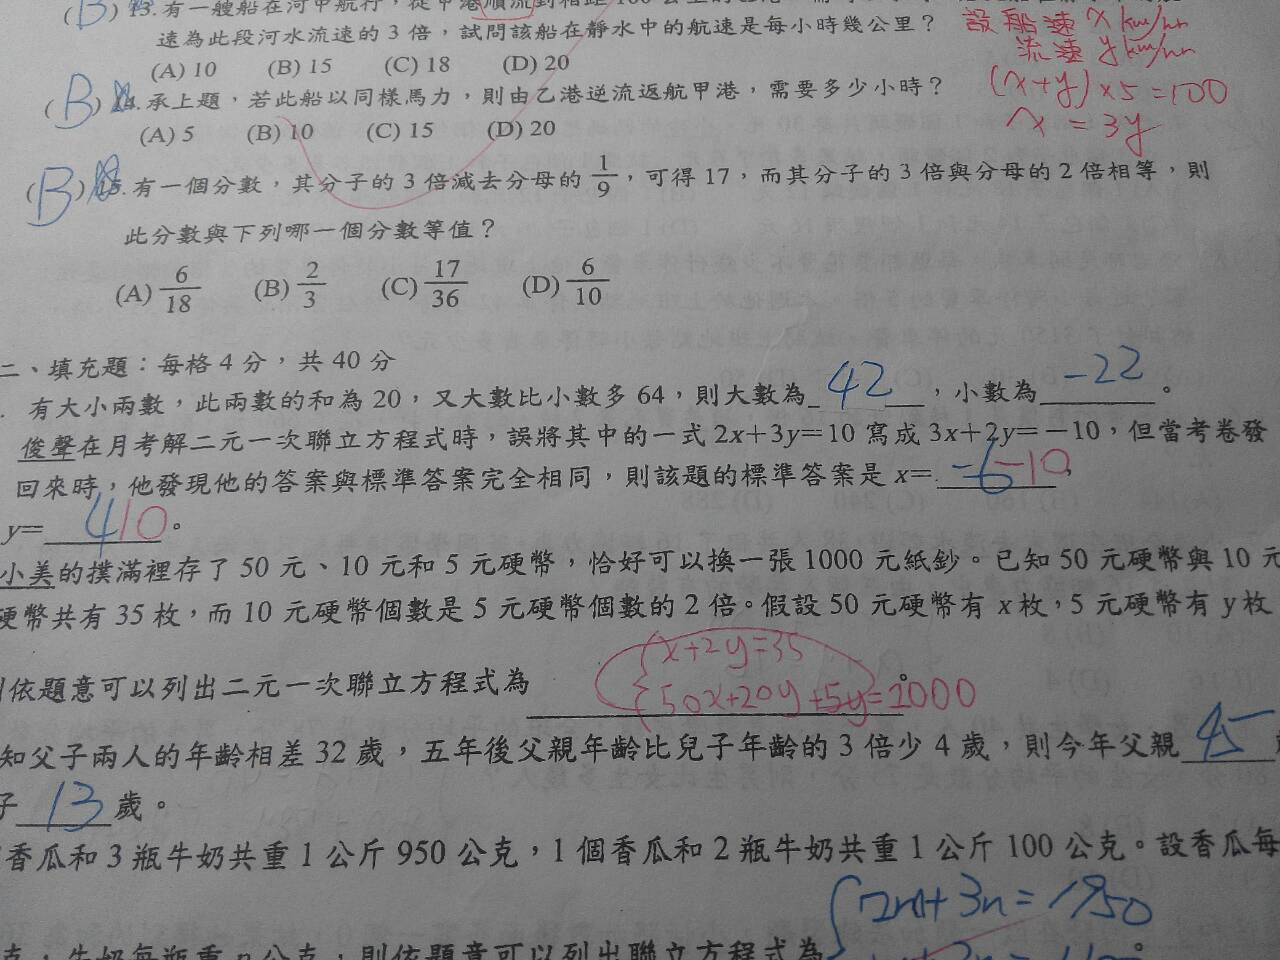 (B) 13. 有一艘船在河中航行，從甲港順流到相距100公里的
速為此段河水流速的 3 倍，試問該船在靜水中的航速是每小時幾公里？ 設船速 x km/hr
流速 y km/hr
(A) 10 (B) 15 (C) 18 (D) 20
(B) 14. 承上題，若此船以同樣馬力，則由乙港逆流返航甲港，需要多少小時？ (x+y)×5=100
(A) 5 (B) 10 (C) 15 (D) 20 x=3y
(B) 15. 有一個分數，其分子的 3 倍減去分母的 1/9，可得 17，而其分子的 3 倍與分母的 2 倍相等，則
此分數與下列哪一個分數等值？
(A) 6/18 (B) 2/3 (C) 17/36 (D) 6/10
二、填充題：每格 4 分，共 40 分
. 有大小兩數，此兩數的和為 20，又大數比小數多 64，則大數為 42，小數為 -22。
俊聲在月考解二元一次聯立方程式時，誤將其中的一式 2x+3y=10 寫成 3x+2y=-10，但當考卷發
回來時，他發現他的答案與標準答案完全相同，則該題的標準答案是 x= -6 -10，
y= 4 10。
小美的撲滿裡存了 50 元、10 元和 5 元硬幣，恰好可以換一張 1000 元紙鈔。已知 50 元硬幣與 10 元
硬幣共有 35 枚，而 10 元硬幣個數是 5 元硬幣個數的 2 倍。假設 50 元硬幣有 x 枚，5 元硬幣有 y 枚
則依題意可以列出二元一次聯立方程式為 { x+2y=35
50x+20y+5y=1000。
知父子兩人的年齡相差 32 歲，五年後父親年齡比兒子年齡的 3 倍少 4 歲，則今年父親 45
子 13 歲。
香瓜和 3 瓶牛奶共重 1 公斤 950 公克，1 個香瓜和 2 瓶牛奶共重 1 公斤 100 公克。設香瓜每
{ 2m+3n=1950
克，牛奶每瓶重 n 公克，則依題意可以列出聯立方程式為